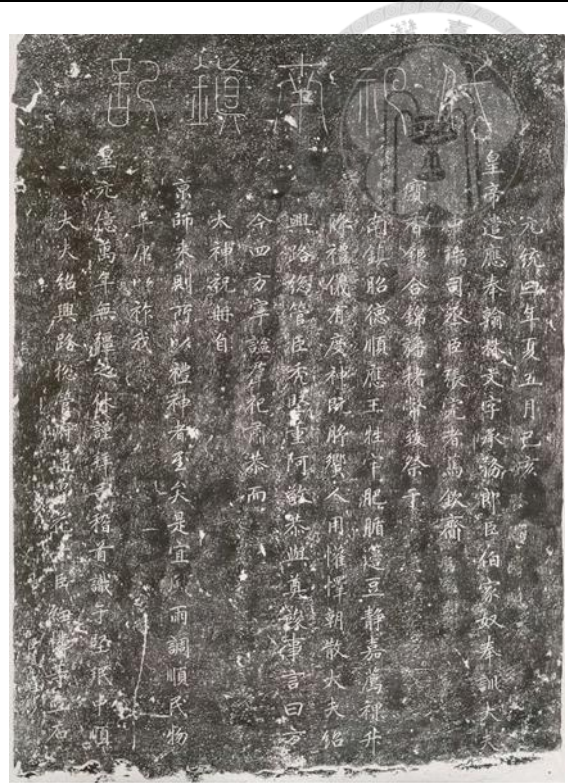 代祀南鎮記
元統四年夏五月己亥
皇帝遣應奉翰林文字承務郎臣伯家奴奉訓大夫
中瑞司丞臣張完者篤欽齎
寶香銀合錦旛楮幣致祭于
南鎮昭德順應王牲牷肥腯籩豆靜嘉薦祼升
降禮儀有度神既將饗人用懽懌朝散大夫紹
興路總管臣禿堅董阿敬恭與奠欽律言曰方
今四方寧謐群祀肅恭而
大神祝冊自
京師來則所以禮神者至矣是宜風雨調順民物
阜康以祚我
皇元億萬年無疆之休謹拜手稽首識于堅珉中順
大夫紹興路總管府達魯花赤臣立石